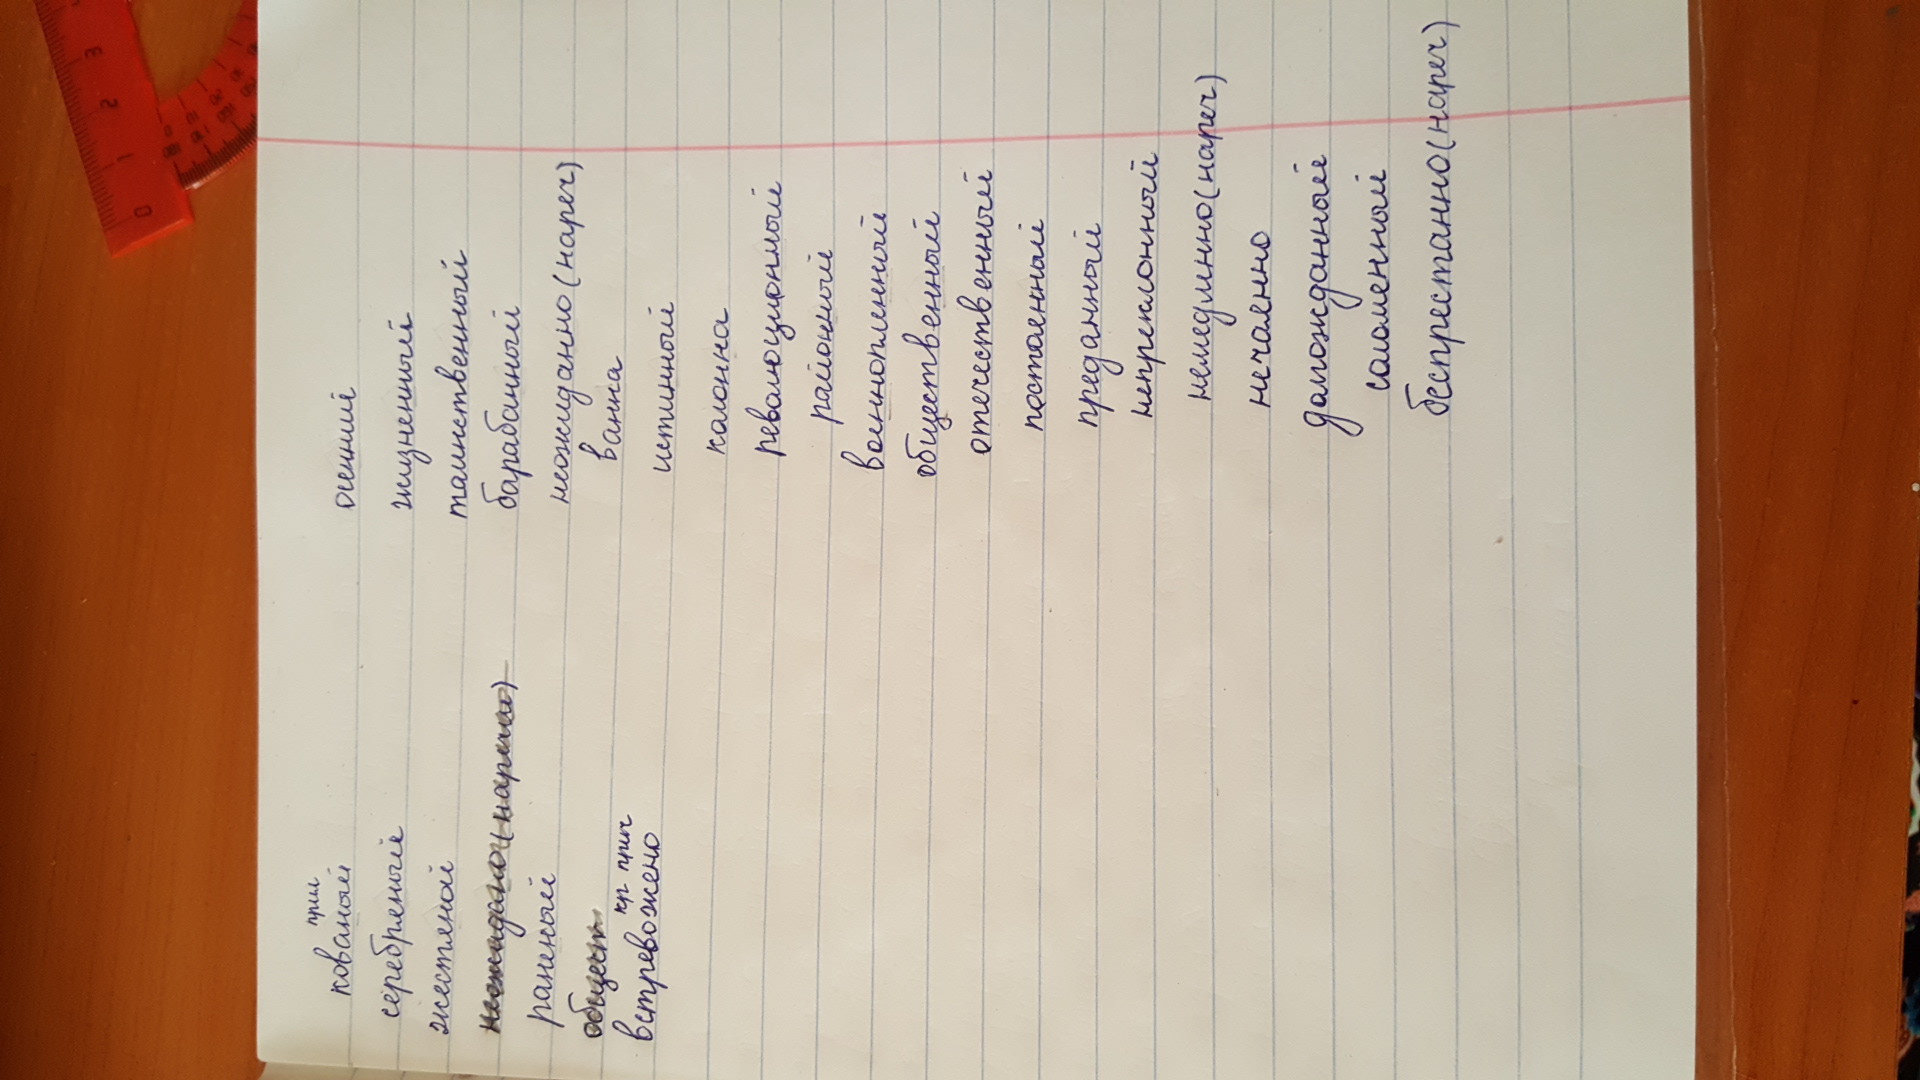 прил
кованый
серебряный
жестяной
раненый
общест
кр. прич
встревожено
осенний
жизненный
таинственный
барабанный
неожиданно(нареч)
ванна
истинный
колонна
революционный
районный
военнопленный
общественный
отечественный
постоянный
преданный
непреклонный
немедленно(нареч)
нечаянно
долгожданный
соломенный
беспрестанно(нареч)
0 1 2 3